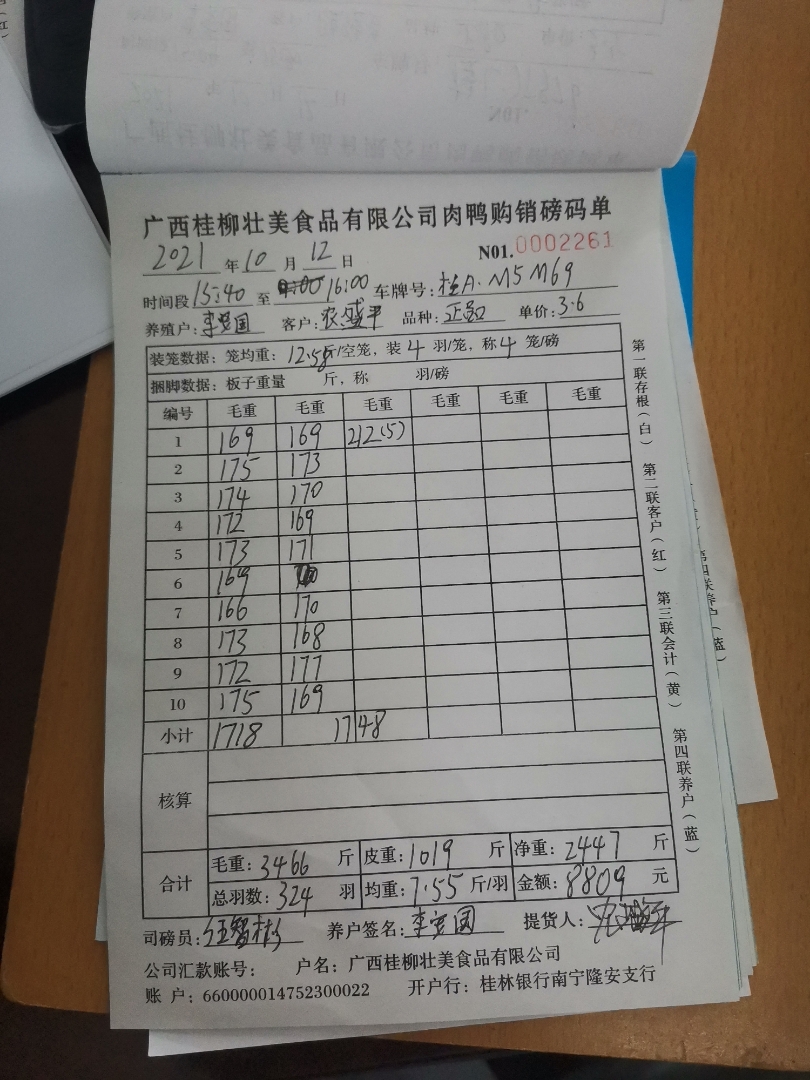 广西桂柳壮美食品有限公司肉鸭购销磅码单
2021 年 10 月 12 日 N01.0002261
时间段 15:40 至 16:00 车牌号: 桂A·M5M69
养殖户: 李 国 客户: 农盛平 品种: 正 单价: 3.6
装笼数据: 笼均重: 12.58 斤/空笼, 装 4 羽/笼, 称 4 笼/磅
捆脚数据: 板子重量 斤, 称 羽/磅
编号 毛重 毛重 毛重 毛重 毛重 毛重
1 169 169 212(5)
2 175 173
3 174 170
4 172 169
5 173 171
6 169
7 166 170
8 173 168
9 172 177
10 175 169
小计 1718 1748
核算
合计 毛重: 3466 斤 皮重: 1019 斤 净重: 2447 斤
总羽数: 324 羽 均重: 7.55 斤/羽 金额: 8809 元
司磅员: 智彬 养户签名: 李 国 提货人:
公司汇款账号: 户名: 广西桂柳壮美食品有限公司
账 户: 660000014752300022 开户行: 桂林银行南宁隆安支行
第一联存根(白) 第二联客户(红) 第三联会计(黄) 第四联养户(蓝)